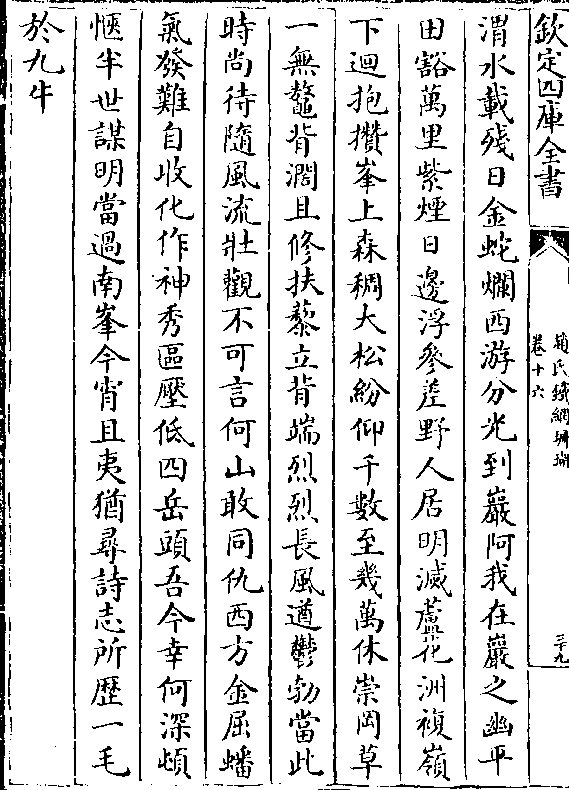 欽定四庫全書
趙氏鐵網珊瑚
卷十六
三十九
渭水載殘日金蛇爛西游分光到巖阿我在巖之幽平
田豁萬里紫煙日邊浮參差野人居明滅蘆花洲複嶺
下迴抱攢峯上森稠大松紛仰千數至幾萬休崇岡草
一無鼇背濶且修扶藜立背端烈烈長風遒鬱勃當此
時尚待隨風流壯觀不可言何山敢同仇西方金屈蟠
氣發難自收化作神秀區壓低四岳頭吾今幸何深頓
愜半世謀明當過南峯今宵且夷猶尋詩志所歴一毛
於九牛